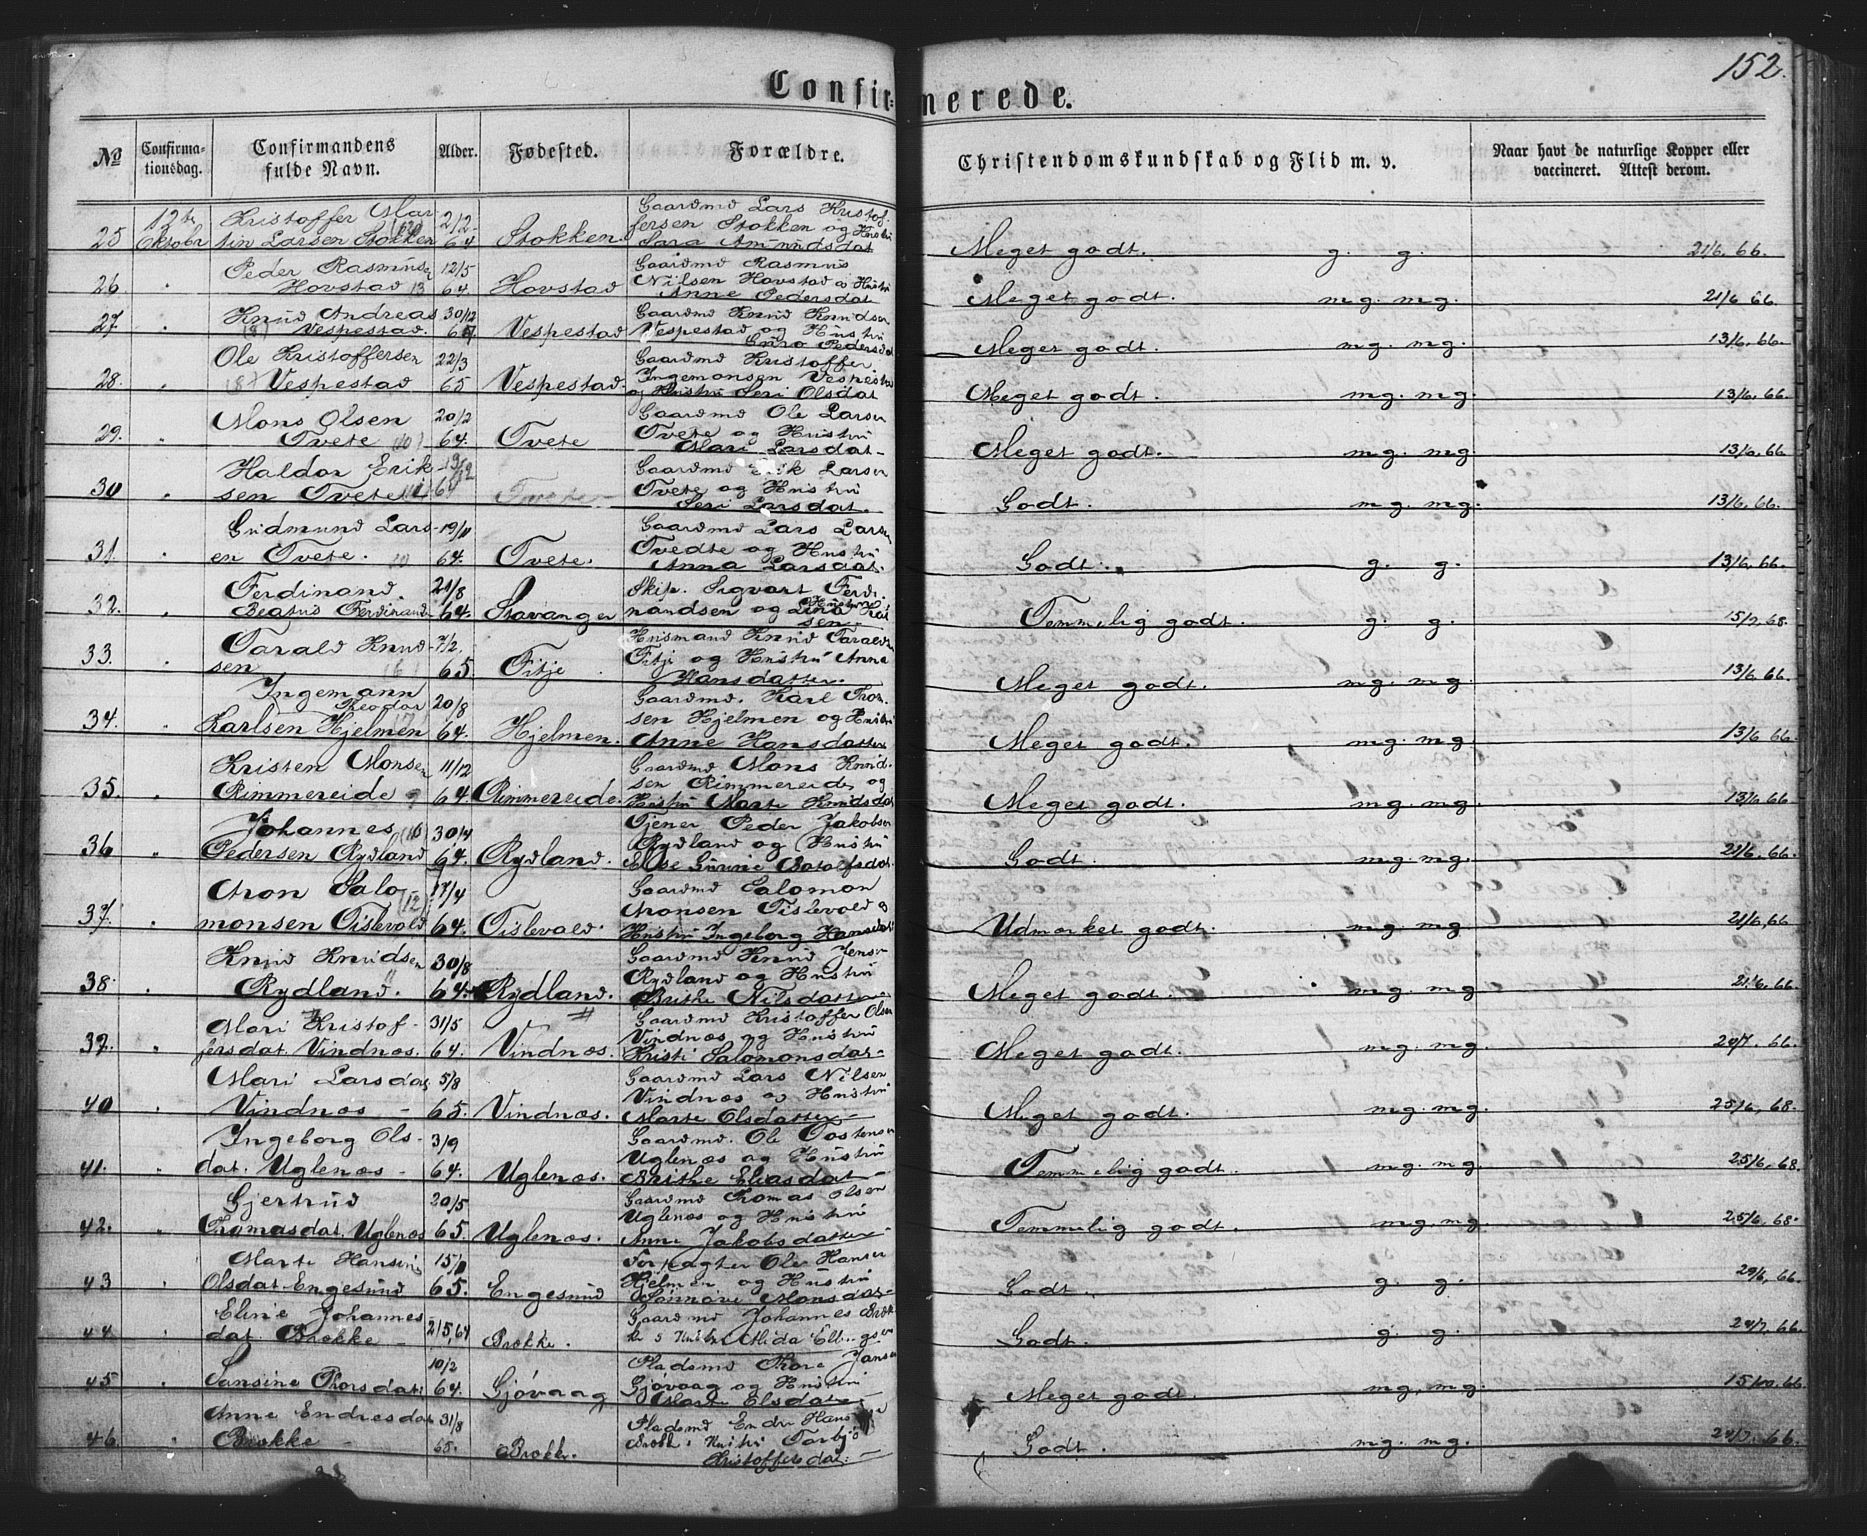 152.
Confirmerede.
No
Confirmationsdag.
Confirmandens fulde Navn.
Alder.
Fødested.
Forældre.
Christendomskundskab og Flid m. v.
Naar havt de naturlige Kopper eller vaccineret. Attest derom.
25 12te Oktobr Kristoffer Martin Larsen Stokken 2/2 64 Stokken. Gaardmd Lars Kristoffersen Stokken og Hustru Sara Amundsdat Meget godt. g. g. 21/6. 66.
26 " Peder Rasmussen Hovstad 13 12/5 64. Hovstad Gaardmd Rasmus Nilsen Hovstad og Hustru Anne Pedersdat Meget godt. mg. mg. 21/6 66.
27. " Knud Andreas Vespestad. 30/12 64 Vespestad Gaardmd Knud Knudsen Vespestad og Hustru Pedersdat Meget godt. mg. mg. 13/6. 66.
28. " Ole Kristoffersen Vespestad 22/3 65 Vespestad. Gaardmd Kristoffer Ingemonsen Vespestad og Hustru Seri Olsdat Meget godt. mg. mg. 13/6. 66
29. " Mons Olsen Tvete 20/2 64. Tvete Gaardmd Ole Larsen Tvete og Hustru Mari Larsdat Meget godt. mg. mg 13/6. 66
30 " Haldor Eriksen Tvete 64 Tvete Gaardmd Erik Larsen Tvete og Hustru Seri Larsdat. Godt. mg. mg. 13/6. 66.
31. " Gudmund Larsen Tvete. 10 19/11 64. Tvete. Gaardmd Lars Larsen Tvedte og Hustru Anna Larsdat. Godt. g. g. 13/6. 66.
32. " Ferdinand. Ferdinands 21/8 64. Stavanger Skip. Sigvart Ferdinandsen og Hustru Lina Godt. Temmelig godt. g. g. 15/7. 68.
33. " Tarald Knudsen 7/2. 65 Fitje Husmand Knud Taraldsen Fitje og Hustru Anna Hansdatter. Meget godt. mg. mg. 13/6 66
34. " Ingemann Theodor Karlsen Hjelmen 20/8 64. Hjelmen. Gaardmd. Karl Thomsen Hjelmen og Hustru Anne Hansdatter Meget godt. mg. mg. 13/6 66.
35. " Kristen Monsen Rimmereide 9 11/12 64. Rimmereide. Gaardmd Mons Knudsen Rimmereide og Hustru Marte Knudsdat Meget godt. mg. mg. 13/6 66
36 " Johannes Pedersen Rydland 30/4 64. Rydland. Tjener Peder Jakobsen Rydland og Hustru Else Gurine Botolfsdat. Godt. mg. mg. 21/6. 66.
37. " Aron Salomonsen Tislevold (12) 17/4 64. Tislevold. Gaardmd Salomon Aronsen Tislevold og Hustru Ingeborg Hansdat Udmerket godt. mg. mg. 21/6. 66
38. " Knud Knudsen Rydland. 30/8 64. Rydland. Gaardmd Knud Jensen Rydland og Hustru Brithe Nilsdatter Meget godt. mg. mg 21/6. 66.
39. " Mari Kristoffersdat. Vindnæs. 31/5 64. Vindnæs. Gaardmd Kristoffer Olsen Vindnæs og Hustru Kristi Salomonsdat Meget godt. mg. mg. 20/7. 66.
40 " Mari Larsdat Vindnæs 5/8 65. Vindnæs. Gaardmd Lars Nilsen Vindnæs og Hustru Marte Olsdatter Meget godt. mg. mg. 25/6. 68.
41. " Ingeborg Olsdat. Uglenæs 3/9 64. Uglenæs. Gaardmd. Ole Tostensen Uglenæs og Hustru Brithe Eliasdat Temmelig godt. mg. mg. 25/6. 68.
42. " Gjertrud Thomasdat. Uglenæs 20/5 65. Uglenæs. Gaardmd Thomas Olsen Uglenæs og Hustru Anne Jakobsdatter Temmelig godt. mg. mg. 25/6. 68.
43 " Marte Hansine Olsdat Engesund 65. Engesund Forpagter Ole Hansen Hjelmen og Hustru Sønnøve Monsdat Godt. g. g. 29/6. 66.
44 " Eline Johannesdat. Brekke 21/5, 64 Brekke. Gaardmd Johannes Brekke og Hustru Godt. g. g. 29/7. 66.
45 " Sansine Thorsdat 10/2 64. Gjøvaag Pladsmd Thore Jansen Gjøvaag og Hustru Marte Elsdat Meget godt. mg. mg. 66
46. " Anne Endresdat Brekke 31/8 Brekke. Pladsmd Endre Hans Brekke Hustru Kristoffersdat. Godt. mg. mg. 29/7. 66.